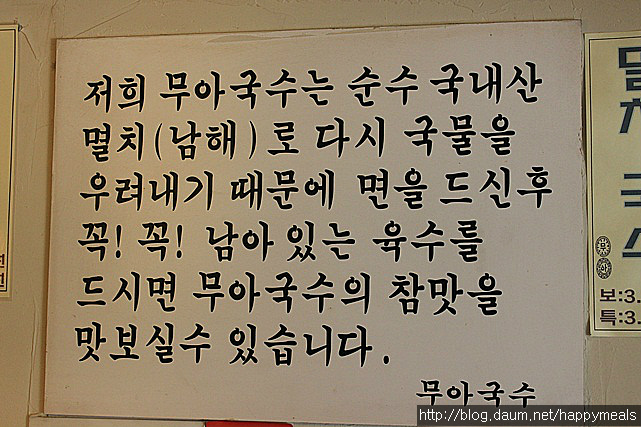 저희 무아국수는 순수 국내산
멸치(남해)로 다시 국물을
우려내기 때문에 면을 드신후
꼭! 꼭! 남아 있는 육수를
드시면 무아국수의 참맛을
맛보실수 있습니다.
무아국수
보:3.
특:3.
http://blog.daum.net/happymeals